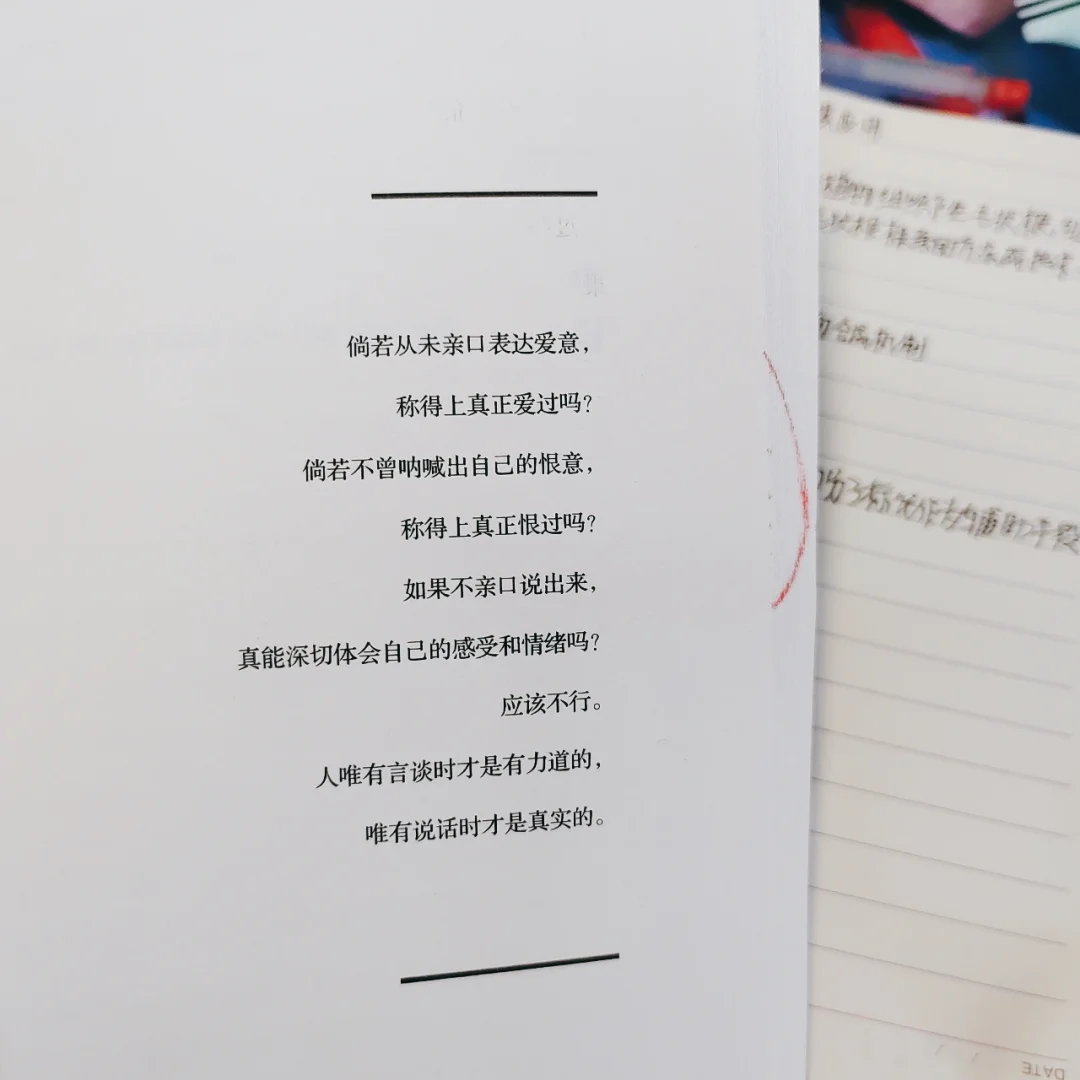 倘若从未亲口表达爱意，
称得上真正爱过吗？
倘若不曾呐喊出自己的恨意，
称得上真正恨过吗？
如果不亲口说出来，
真能深切体会自己的感受和情绪吗？
应该不行。
人唯有言谈时才是有力道的，
唯有说话时才是真实的。
DATE